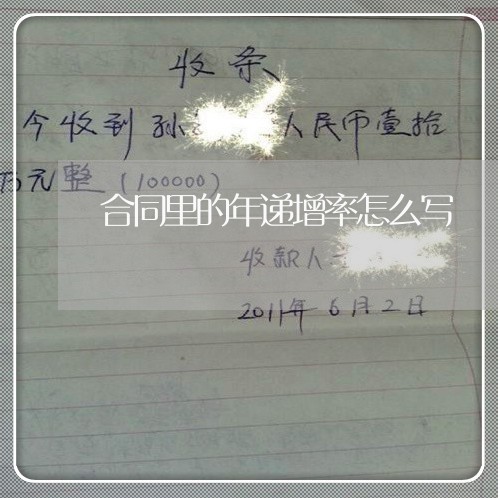 收条
今收到孙 人民币壹拾
万元整(100000)
合同里的年递增率怎么写
收款人
2011年6月2日